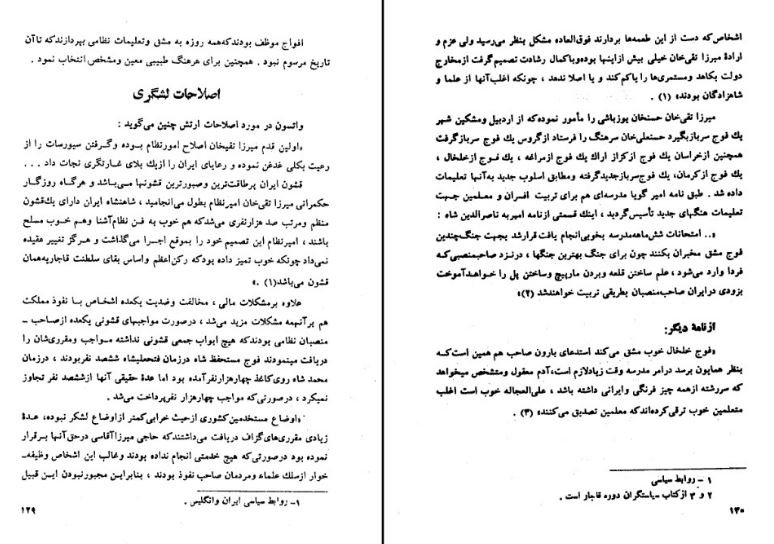 افواج موظف بودندکه‌همه روزه به مشق وتعلیمات نظامی بپردازندکه تاآن
تاریخ مرسوم نبود . همچنین برای هرهنگ طبیبی معین ومشخص انتخاب نمود .
اصلاحات لشگری
واتسون در مورد اصلاحات ارتش چنین می‌گوید :
«اولین قدم میرزا تقیخان اصلاح امورنظام بوده وگرفتن سیورسات را از
رعیت بکلی غدغن نموده و رعایای ایران را ازیك بلای غارتگری نجات داد . . .
قشون ایران پرطاقت‌ترین وصبورترین قشونها می‌باشد و هرگاه روزگار
حکمرانی میرزا تقی‌خان امیرنظام بطول می‌انجامید ، شاهنشاه ایران دارای یك‌قشون
منظم ومرتب صد هزارنفری می‌شدکه هم خوب به فن نظام‌آشنا وهم خوب مسلح
باشند ، امیرنظام این تصمیم خود را بموقع اجرا می‌گذاشت و هرگز تغییر عقیده
نمی‌داد چونکه خوب تمیز داده بودکه رکن‌اعظم واساس بقای سلطنت قاجاریه‌همان
قشون می‌باشد(۱) .»
علاوه برمشکلات مالی ، مخالفت وضدیت یکعده اشخاص با نفوذ مملکت
هم برآنهمه مشکلات مزید می‌شد ، درصورت مواجبهای قشونی یکعده ازصاحب‌ـ
منصبان نظامی بودندکه هیچ ابواب جمعی قشونی نداشته مـواجب ومقرری‌شان را
دریافت مینمودند فوج مستحفظ شاه درزمان فتحعلیشاه ششصد نفربودند ، درزمان
محمد شاه روی‌کاغذ چهارهزارنفرآمده بود اما عدۀ حقیقی آنها ازششصد نفر تجاوز
نمیکرد ، درصورتی‌که مواجب چهارهزار نفرپرداخت می‌شد .
«اوضاع مستخدمین‌کشوری ازحیث خرابی‌کمتر ازاوضاع لشکر نبوده، عـدۀ
زیادی مقرری‌های‌گزاف دریافت می‌داشتندکه حاجی میرزاآقاسی درحق‌آنها برقرار
نموده بود درصورتی‌که هیچ خدمتی انجام نداده بودند وغالب این اشخاص وظیفه‌ـ
خوار ازسلك علماء ومردمان صاحب نفوذ بودند ، بنابراین مجبورنبودن ایـن قبیل
۱ـ روابط سیاسی ایران وانگلیس .
۱۲۹
اشخاص‌که دست از این طعمه‌ها بردارند فوق‌العاده مشکل بنظر می‌رسید ولی عزم و
ارادۀ میرزا تقی‌خان خیلی بیش ازاینها بوده‌وباکمال رشادت تصمیم‌گرفت ازمخارج
دولت بکاهد ومستمری‌ها را یاکم‌کند و یا اصلا ندهد ، چونکه اغلب‌آنها از علما و
شاهزادگان بودند» (۱) .
میرزا تقی‌خان حسنخان یوزباشی را مأمور نموده‌که از اردبیل ومشکین شهر
یك فوج سربازبگیرد حسنعلی‌خان سرهنگ را فرستاد ازگروس یك فوج سربازگرفت
همچنین ازخراسان یك فوج ازکزاز اراك یك فوج ازمراغه ، یك فـوج ازخلخال ،
یك فوج ازکرمان، یك فوج‌سربازجدیدگرفته ومطابق اسلوب جدید به‌آنها تعلیمات
داده شد . طبق نامه امیر گویا مدرسه‌ای هم برای تربیت افسران و معلمین جهت
تعلیمات هنگهای جدید تأسیس‌گردید ، اینك قسمتی ازنامه امیربه ناصرالدین شاه :
«.. امتحانات شش‌ماهه‌مدرسه بخوبی‌انجام یافت قرارشد بجهت جنگ‌چندین
فوج مشق مخبران بکنند چون برای جنگ بهترین جنگها ، درنـزد صاحبمنصبی‌که
فردا وارد می‌شود ، علم ساختن قلعه وبردن مارپیچ وساختن پل را خواهـدآموخت
بزودی درایران صاحب‌منصبان بطریقی تربیت خواهندشد (۲)»
ازنامۀ دیگر:
«فوج خلخال خوب مشق می‌کند استدعای بارون صاحب هم همین است‌که
بنظر همایون برسد درامر مدرسه وقت زیادلازم است،آدم معقول ومتشخص میخواهد
که سررشته ازهمه چیز فرنگی وایرانی داشته باشد ، علی‌العجاله خوب است اغلب
متعلمین خوب ترقی‌کرده‌اندکه معلمین تصدیق می‌کنند» (۳) .
۱ ـ روابط سیاسی
۲ و ۳ ازکتاب سیاستگران دوره قاجار است .
۱۳۰